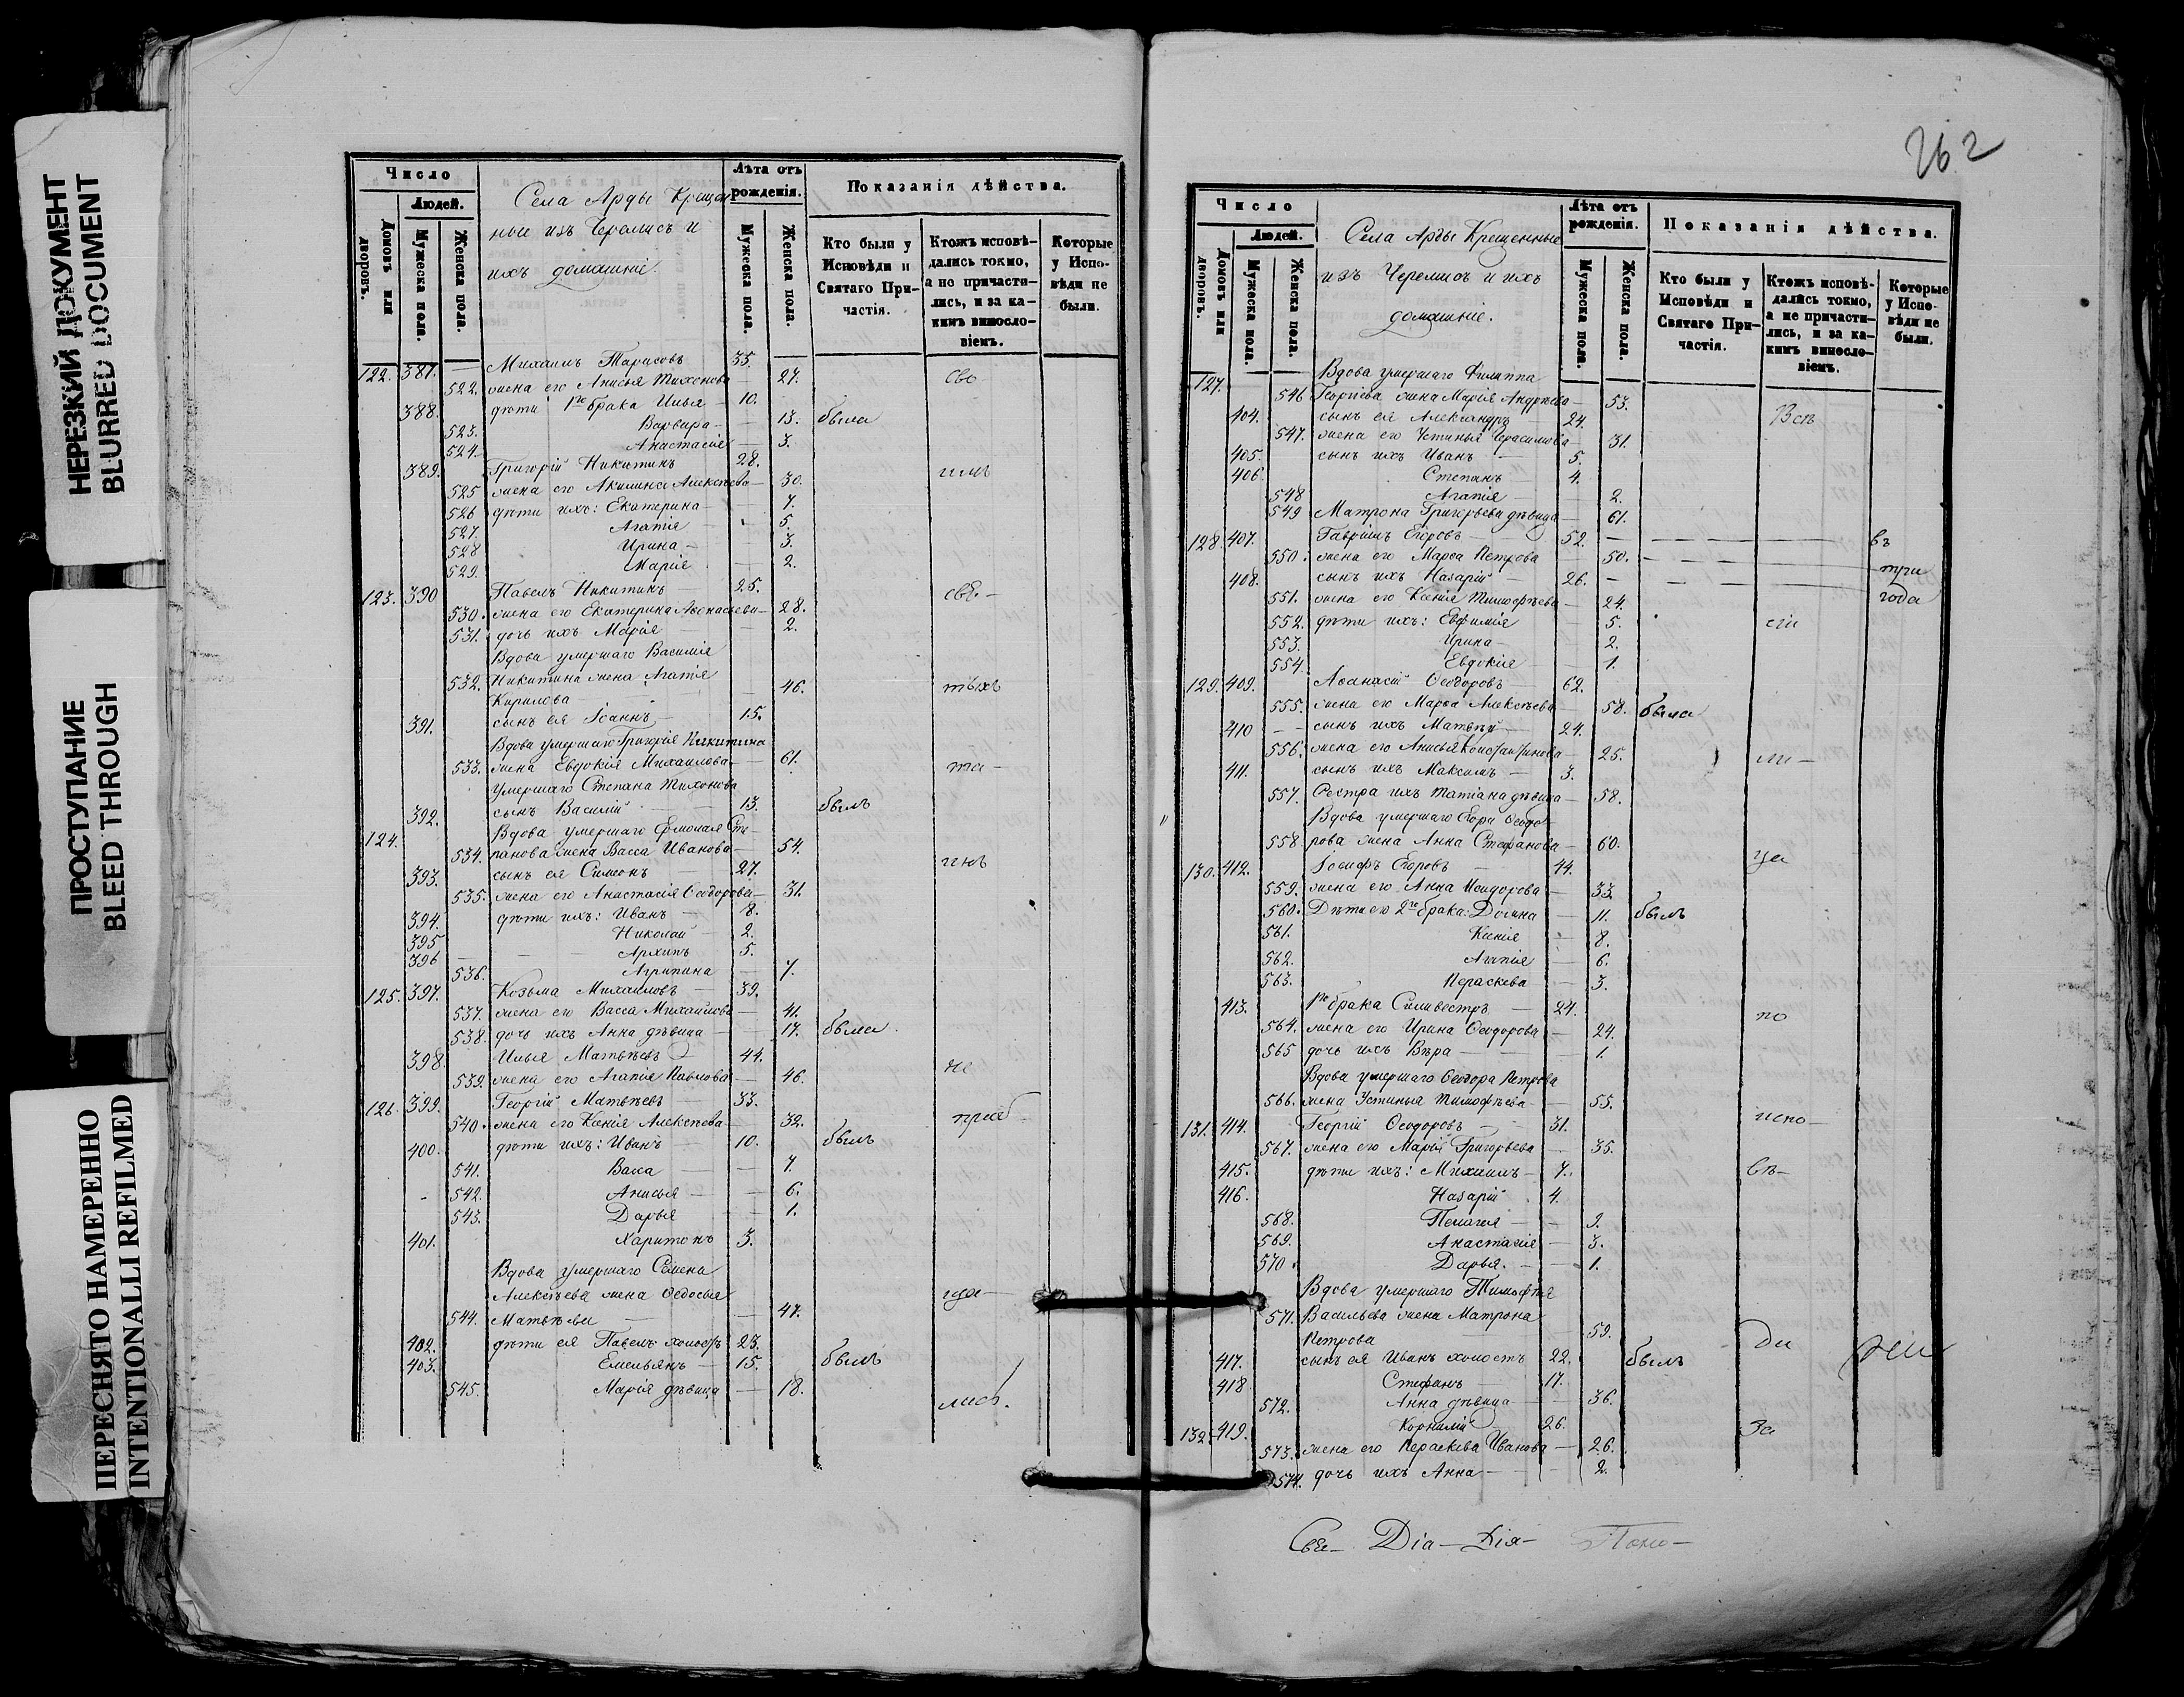 НЕРЕЗКИЙ ДОКУМЕНТ
BLURRED DOCUMENT
ПРОСТУПАНИЕ
BLEED THROUGH
ПЕРЕСНЯТО НАМЕРЕННО
INTENTIONALLI REFILMED
Число
Людей.
Домовъ или дворовъ.
Мужеска пола.
Женска пола.
Села Арды Крещен
ные изъ Черемисъ и
ихъ домашніе.
Лѣта отъ рожденія.
Мужеска пола.
Женска пола.
Показанія дѣйства.
Кто были у Исповѣди и Святаго Причастія.
Ктожъ исповѣдались токмо, а не причастились, и за какимъ винословіемъ.
Которые у Исповѣди не были.
122. 387. — Михаилъ Тарасовъ 35.
522. жена его Анисья Тихонова — 27. сво
388. дѣти 1го брака Илья — 10.
523. Варвара — 13. была
524. Анастасія — 3.
389. Григорій Никитинъ 28.
525 жена его Акилина Алексѣева — 30.
526 дѣти ихъ: Екатерина — 7.
527. Агапія — 5.
528 Ирина — 3.
529. Марія — 2.
123. 390 Павелъ Никитинъ — 25.
530. жена его Екатерина Аѳонасьева — 28.
531. дочь ихъ Марія — 2.
Вдова умершаго Василія
532. Никитина жена Агапія 46.
Кирилова —
391. сынъ ея Іоаннъ — 15.
Вдова умершаго Григорія Никитина
533. жена Евдокія Михаилова — 61. та —
умершаго Степана Тихонова
392. сынъ Василій — 13. былъ
124. Вдова умершаго Ермолая Сте-
534. панова жена Васса Иванова — 54.
393. сынъ ея Симеонъ — 27.
535. жена его Анастасія Ѳеодорова — 31.
394. дѣти ихъ: Иванъ — 8.
395 Николай — 2.
396 — Архипъ — 5.
536. Агрипина — 7.
125. 397. Козьма Михаиловъ — 39.
537. жена его Васса Михайлова — 41.
538. дочь ихъ Анна дѣвица — 17. была
398. Илья Матвѣевъ 44.
539. жена его Агапія Павлова — 46. не
126. 399. Георгій Матвѣевъ — 33.
540. жена его Ксенія Алексѣева — 32.
400. дѣти ихъ: Иванъ — 10. былъ
541. Васса — 7.
542. Анисья — 6.
543. Дарья — 1.
401. Харитонъ 3.
Вдова умершаго Семена
Алексѣева жена Ѳедосья
544. Матвѣева — 47.
402. дѣти ея Павелъ холостъ 23.
403. Емельянъ — 15. былъ
545. Марія дѣвица — 18.
262
Число
Людей.
Домовъ или дворовъ.
Мужеска пола.
Женска пола.
Села Арды Крещенные
изъ Черемисъ и ихъ
домашніе.
Лѣта отъ рожденія.
Мужеска пола.
Женска пола.
Показанія дѣйства.
Кто были у Исповѣди и Святаго Причастія.
Ктожъ исповѣдались токмо, а не причастились, и за какимъ винословіемъ.
Которые у Исповѣди не были.
127. Вдова умершаго Филиппа
546 Георгіева жена Марія Андрѣева — 53.
404. сынъ ея Александръ — 24. Всѣ
547. жена его Устинья Герасимова — 31.
405. сынъ ихъ Иванъ — 5.
406. Степанъ — 4.
548 Агапія — 2.
549 Матрона Григорьева дѣвица — 61.
128. 407. Гавріилъ Егоровъ — 52. — въ
550. жена его Марѳа Петрова 50. — три
408. сынъ ихъ Назарій — 26. — года
551. жена его Ксенія Тимоѳѣева — 24.
552. дѣти ихъ: Евфимія — 5. сіи
553. Ирина — 2.
554. Евдокія — 1.
129. 409. Аѳанасій Ѳеодоровъ — 62.
555. жена его Марѳа Алексѣева — 58. была
410 — сынъ ихъ Матвѣй — 24.
556. жена его Анисья Константинова — 25. ли —
411. сынъ ихъ Максимъ — 3.
557. Сестра ихъ Татіана дѣвица — 58.
Вдова умершаго Егора Ѳеодо-
558. рова жена Анна Стефанова — 60.
130. 412. Іосифъ Егоровъ — 44. ца
559. жена его Анна Исидорова — 33
560. Дѣти его 2го брака: Домна — 11. былъ
561. Ксенія — 8.
562. Агапія — 6.
563. Параскева — 3.
413. 1го брака Сильвестръ — 24. по
564. жена его Ирина Ѳеодорова — 24.
565 дочь ихъ Вѣра — 1.
Вдова умершаго Ѳеодора Петрова
566. жена Устинья Тимоѳѣева — 55.
131. 414. Георгій Ѳеодоровъ — 31. испо —
567. жена его Марія Григорьева — 35.
415. дѣти ихъ: Михаилъ — 7. вѣ —
416. Назарій 4.
568. Пелагея — 9.
569. Анастасія — 3.
570. Дарья. — 1.
Вдова умершаго Тимоѳѣя
571. Васильева жена Матрона
Петрова 59. ди
417. сынъ ея Иванъ холостъ 22. былъ
418 Стефанъ — 17.
572. Анна дѣвица — 36.
132. 419. Корнилій — 26. За
573. жена его Параскева Иванова — 26.
574. дочь ихъ Анна — 2.
Свя — Діа — Дія — Поно —